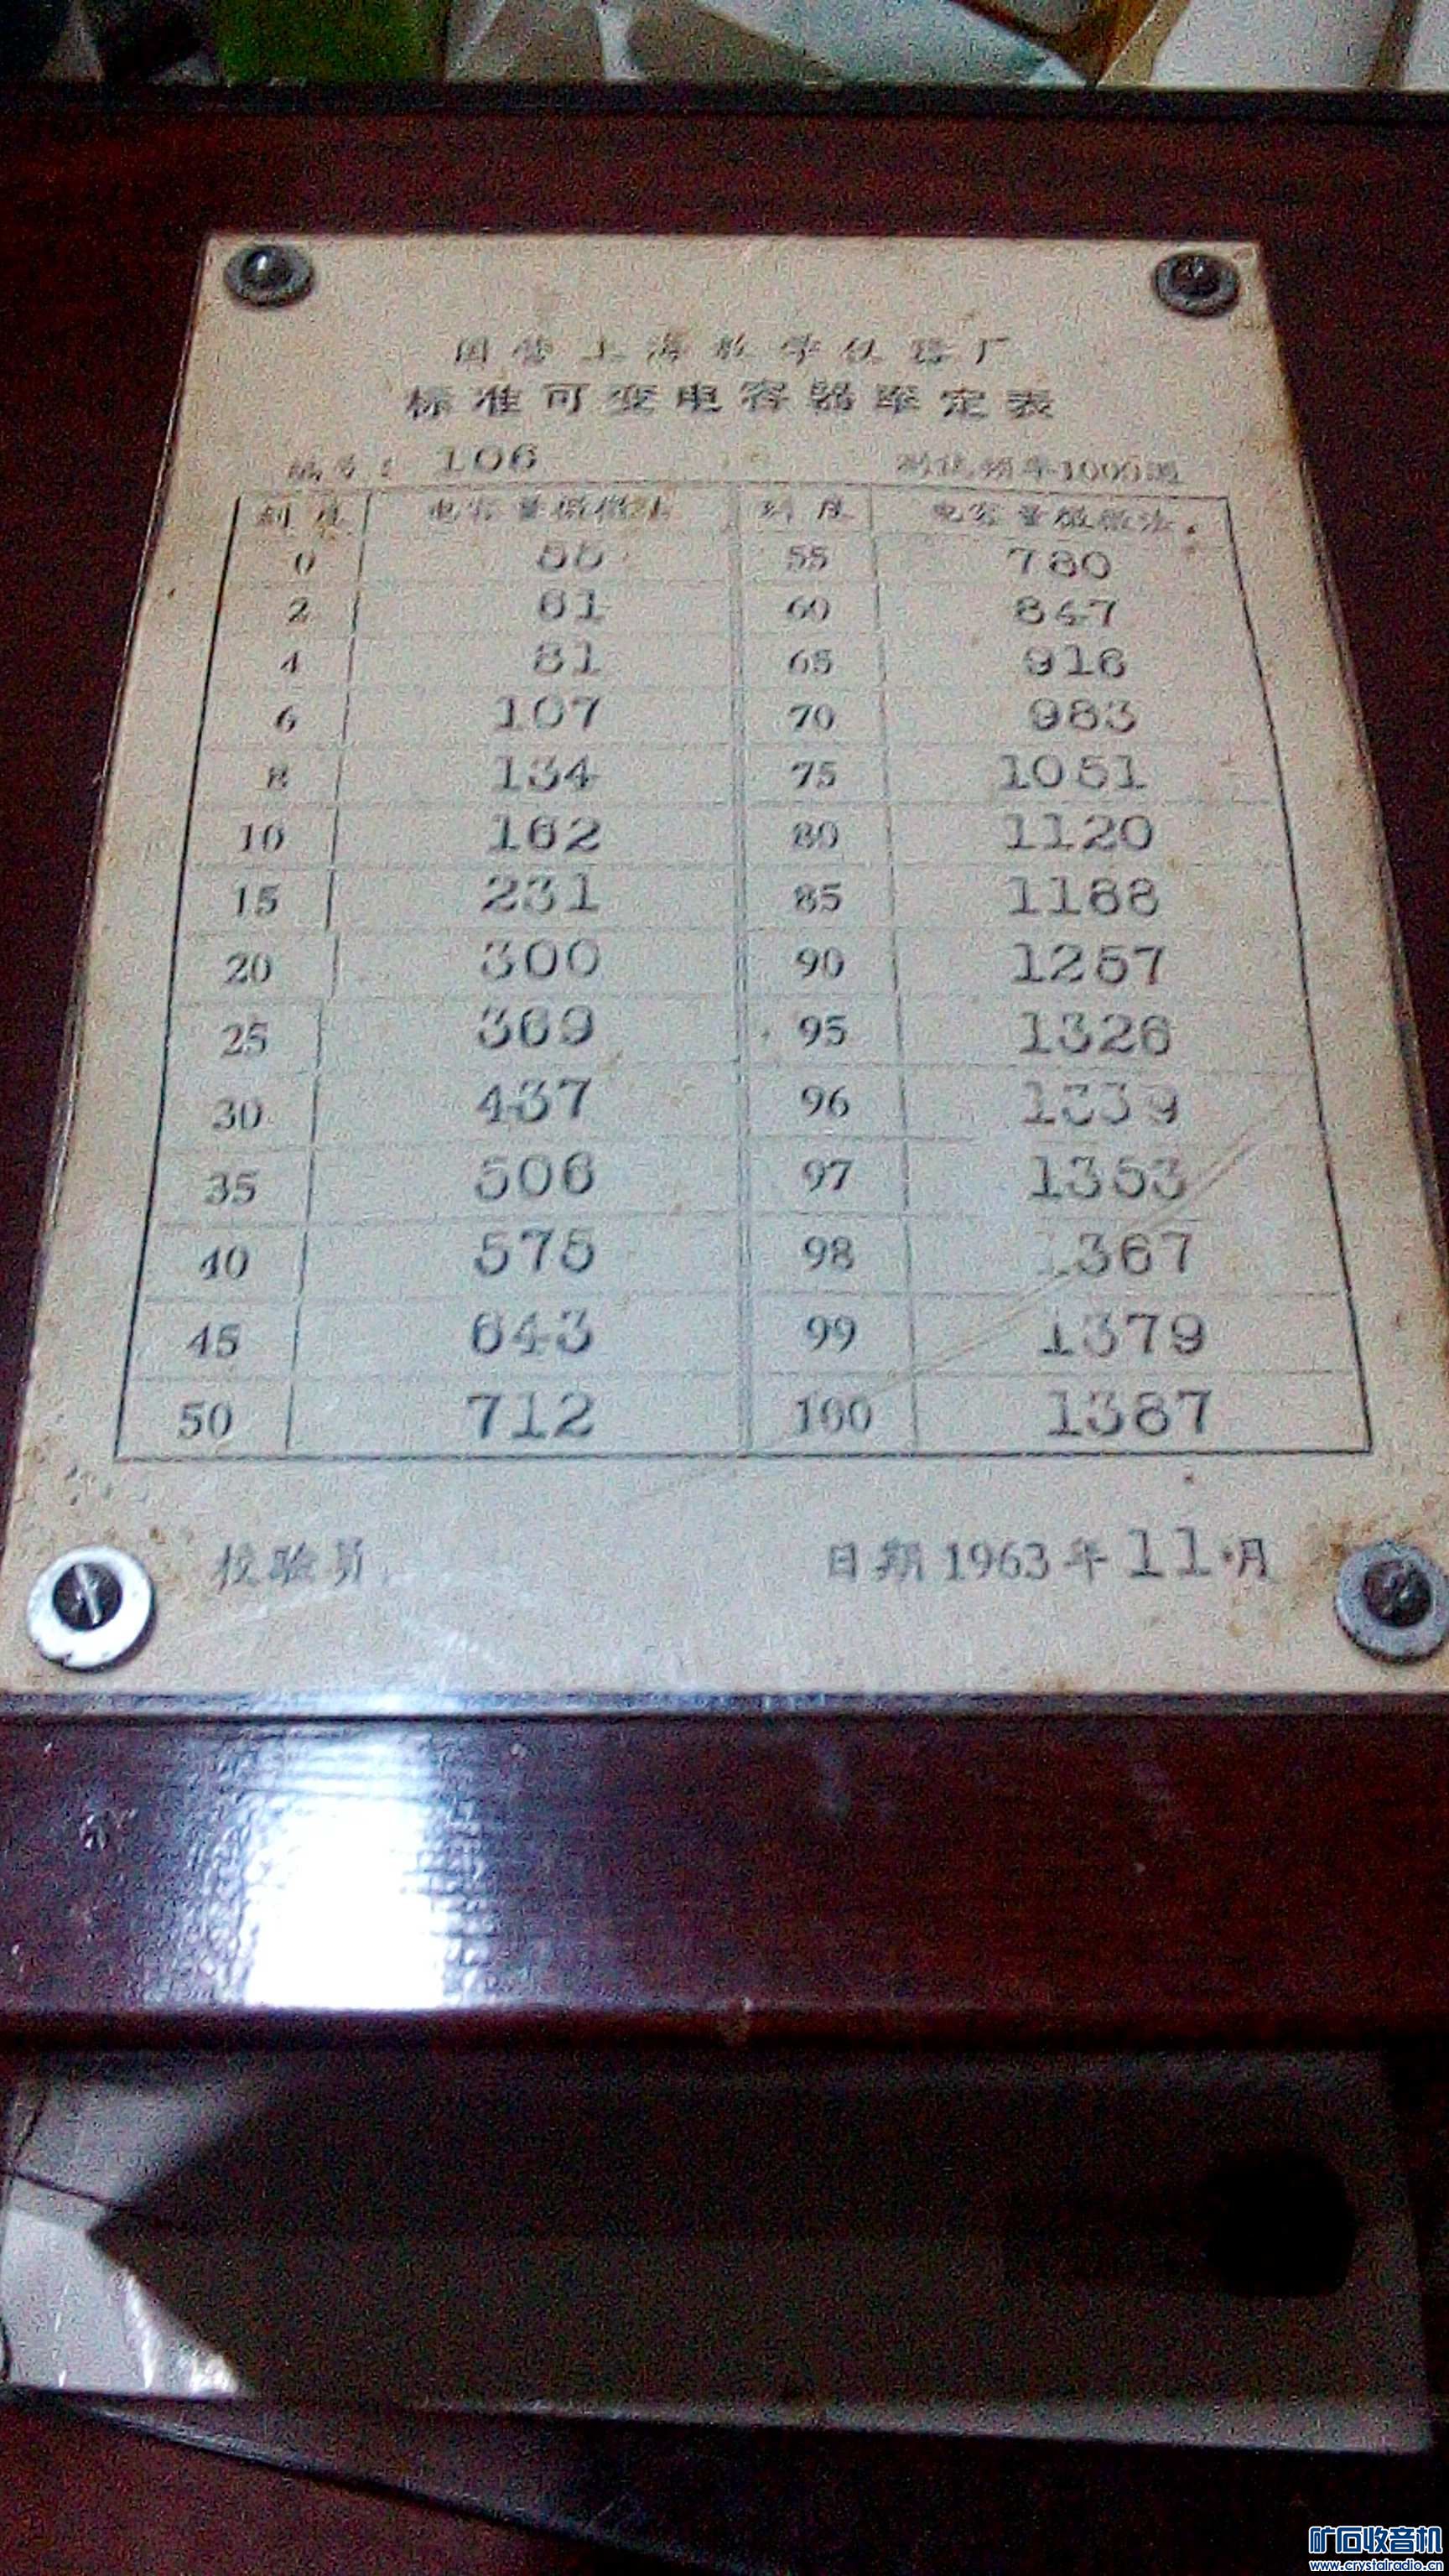 国营上海教学仪器厂
标准可变电容器率定表
编号: 106 测试频率1000周
刻度 电容量微微法 刻度 电容量微微法
0 55 780
2 61 60 847
4 81 65 916
6 107 70 983
8 134 75 1051
10 162 80 1120
15 231 85 1188
20 300 90 1257
25 369 95 1326
30 437 96 1339
35 506 97 1353
40 575 98 1367
45 643 99 1379
50 712 100 1387
校验员 日期1963年11月
矿石收音机
www.crystalradio.cn